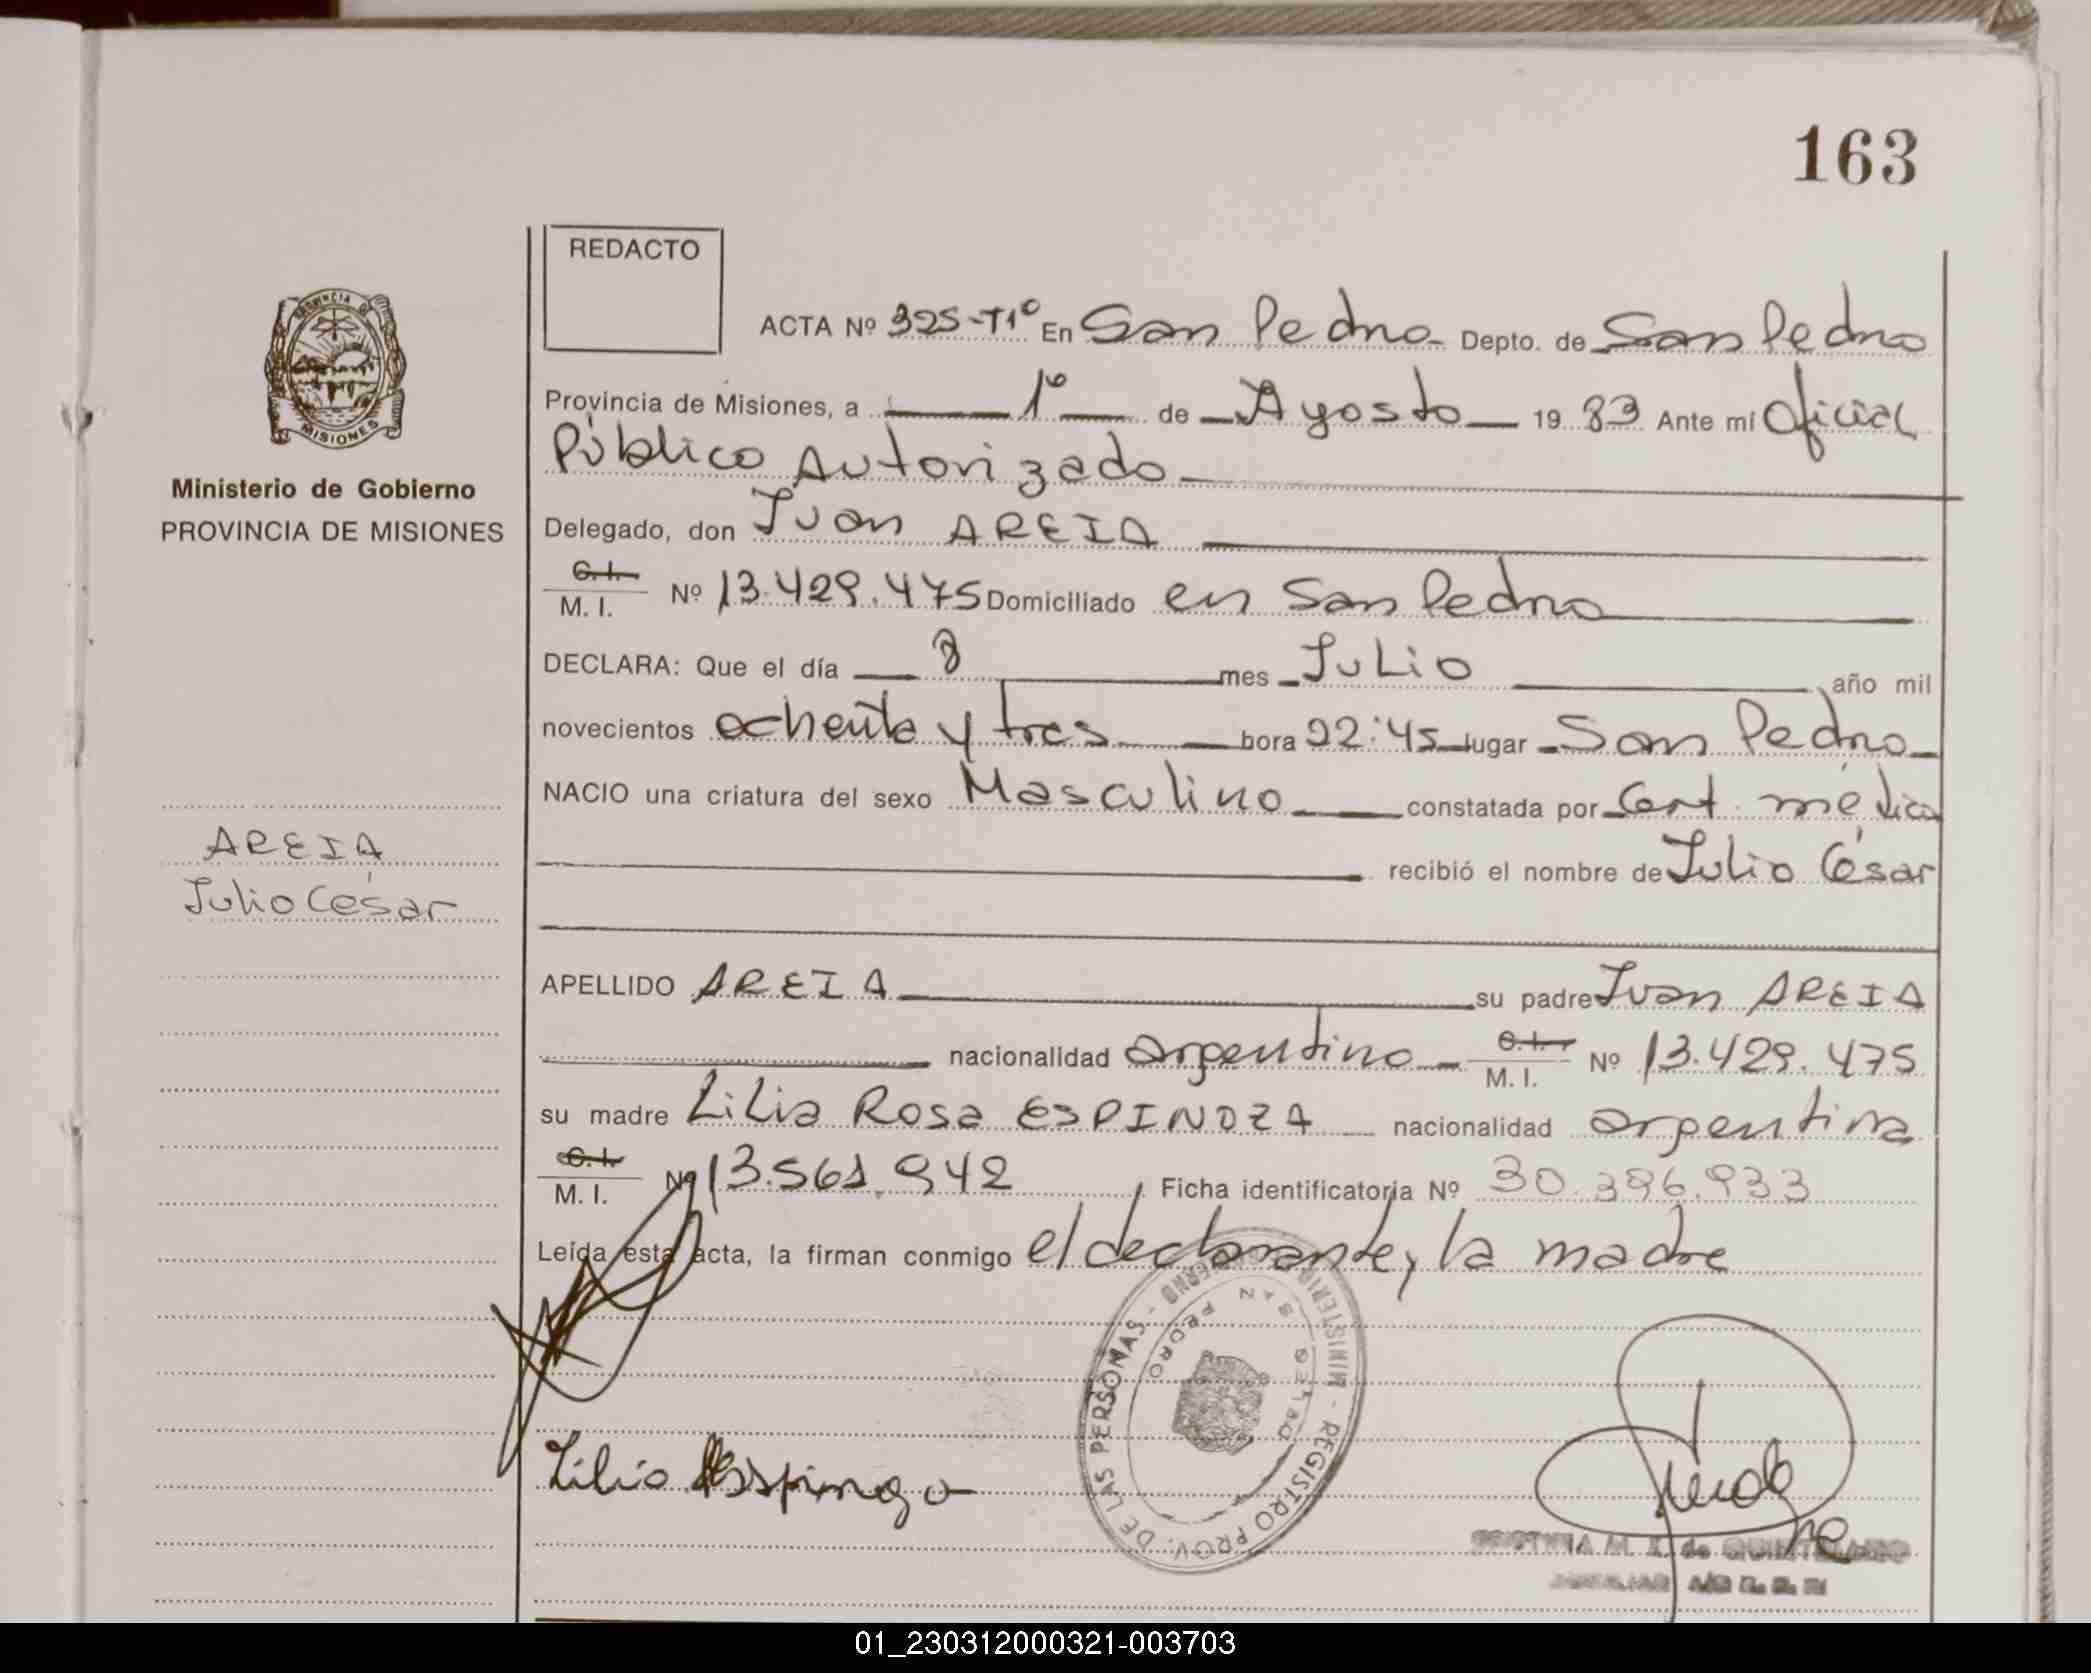 163
REDACTO
ACTA Nº 325-T1º En San Pedro Depto. de San Pedro
Provincia de Misiones, a 1º de Agosto 1983 Ante mí Oficial
Público Autorizado
Delegado, don Juan AREIA
C. I. M. I. Nº 13.429.475 Domiciliado en San Pedro
DECLARA: Que el día 8 mes Julio año mil
novecientos ochenta y tres hora 22:45 lugar San Pedro
NACIO una criatura del sexo Masculino constatada por Cert. médico
recibió el nombre de Julio César
APELLIDO AREIA su padre Juan AREIA
nacionalidad argentino C. I. M. I. Nº 13.429.475
su madre Lilia Rosa ESPINOZA nacionalidad argentina
C. I. M. I. Nº 13.561.942 Ficha identificatoria Nº 30.396.933
Leída esta acta, la firman conmigo el declarante, la madre
PROVINCIA DE MISIONES
Ministerio de Gobierno
PROVINCIA DE MISIONES
AREIA
Julio César
MINISTERIO GOBIERNO - REGISTRO PROV. DE LAS PERSONAS -
SAN PEDRO
Lilia Espinoza
01_230312000321-003703